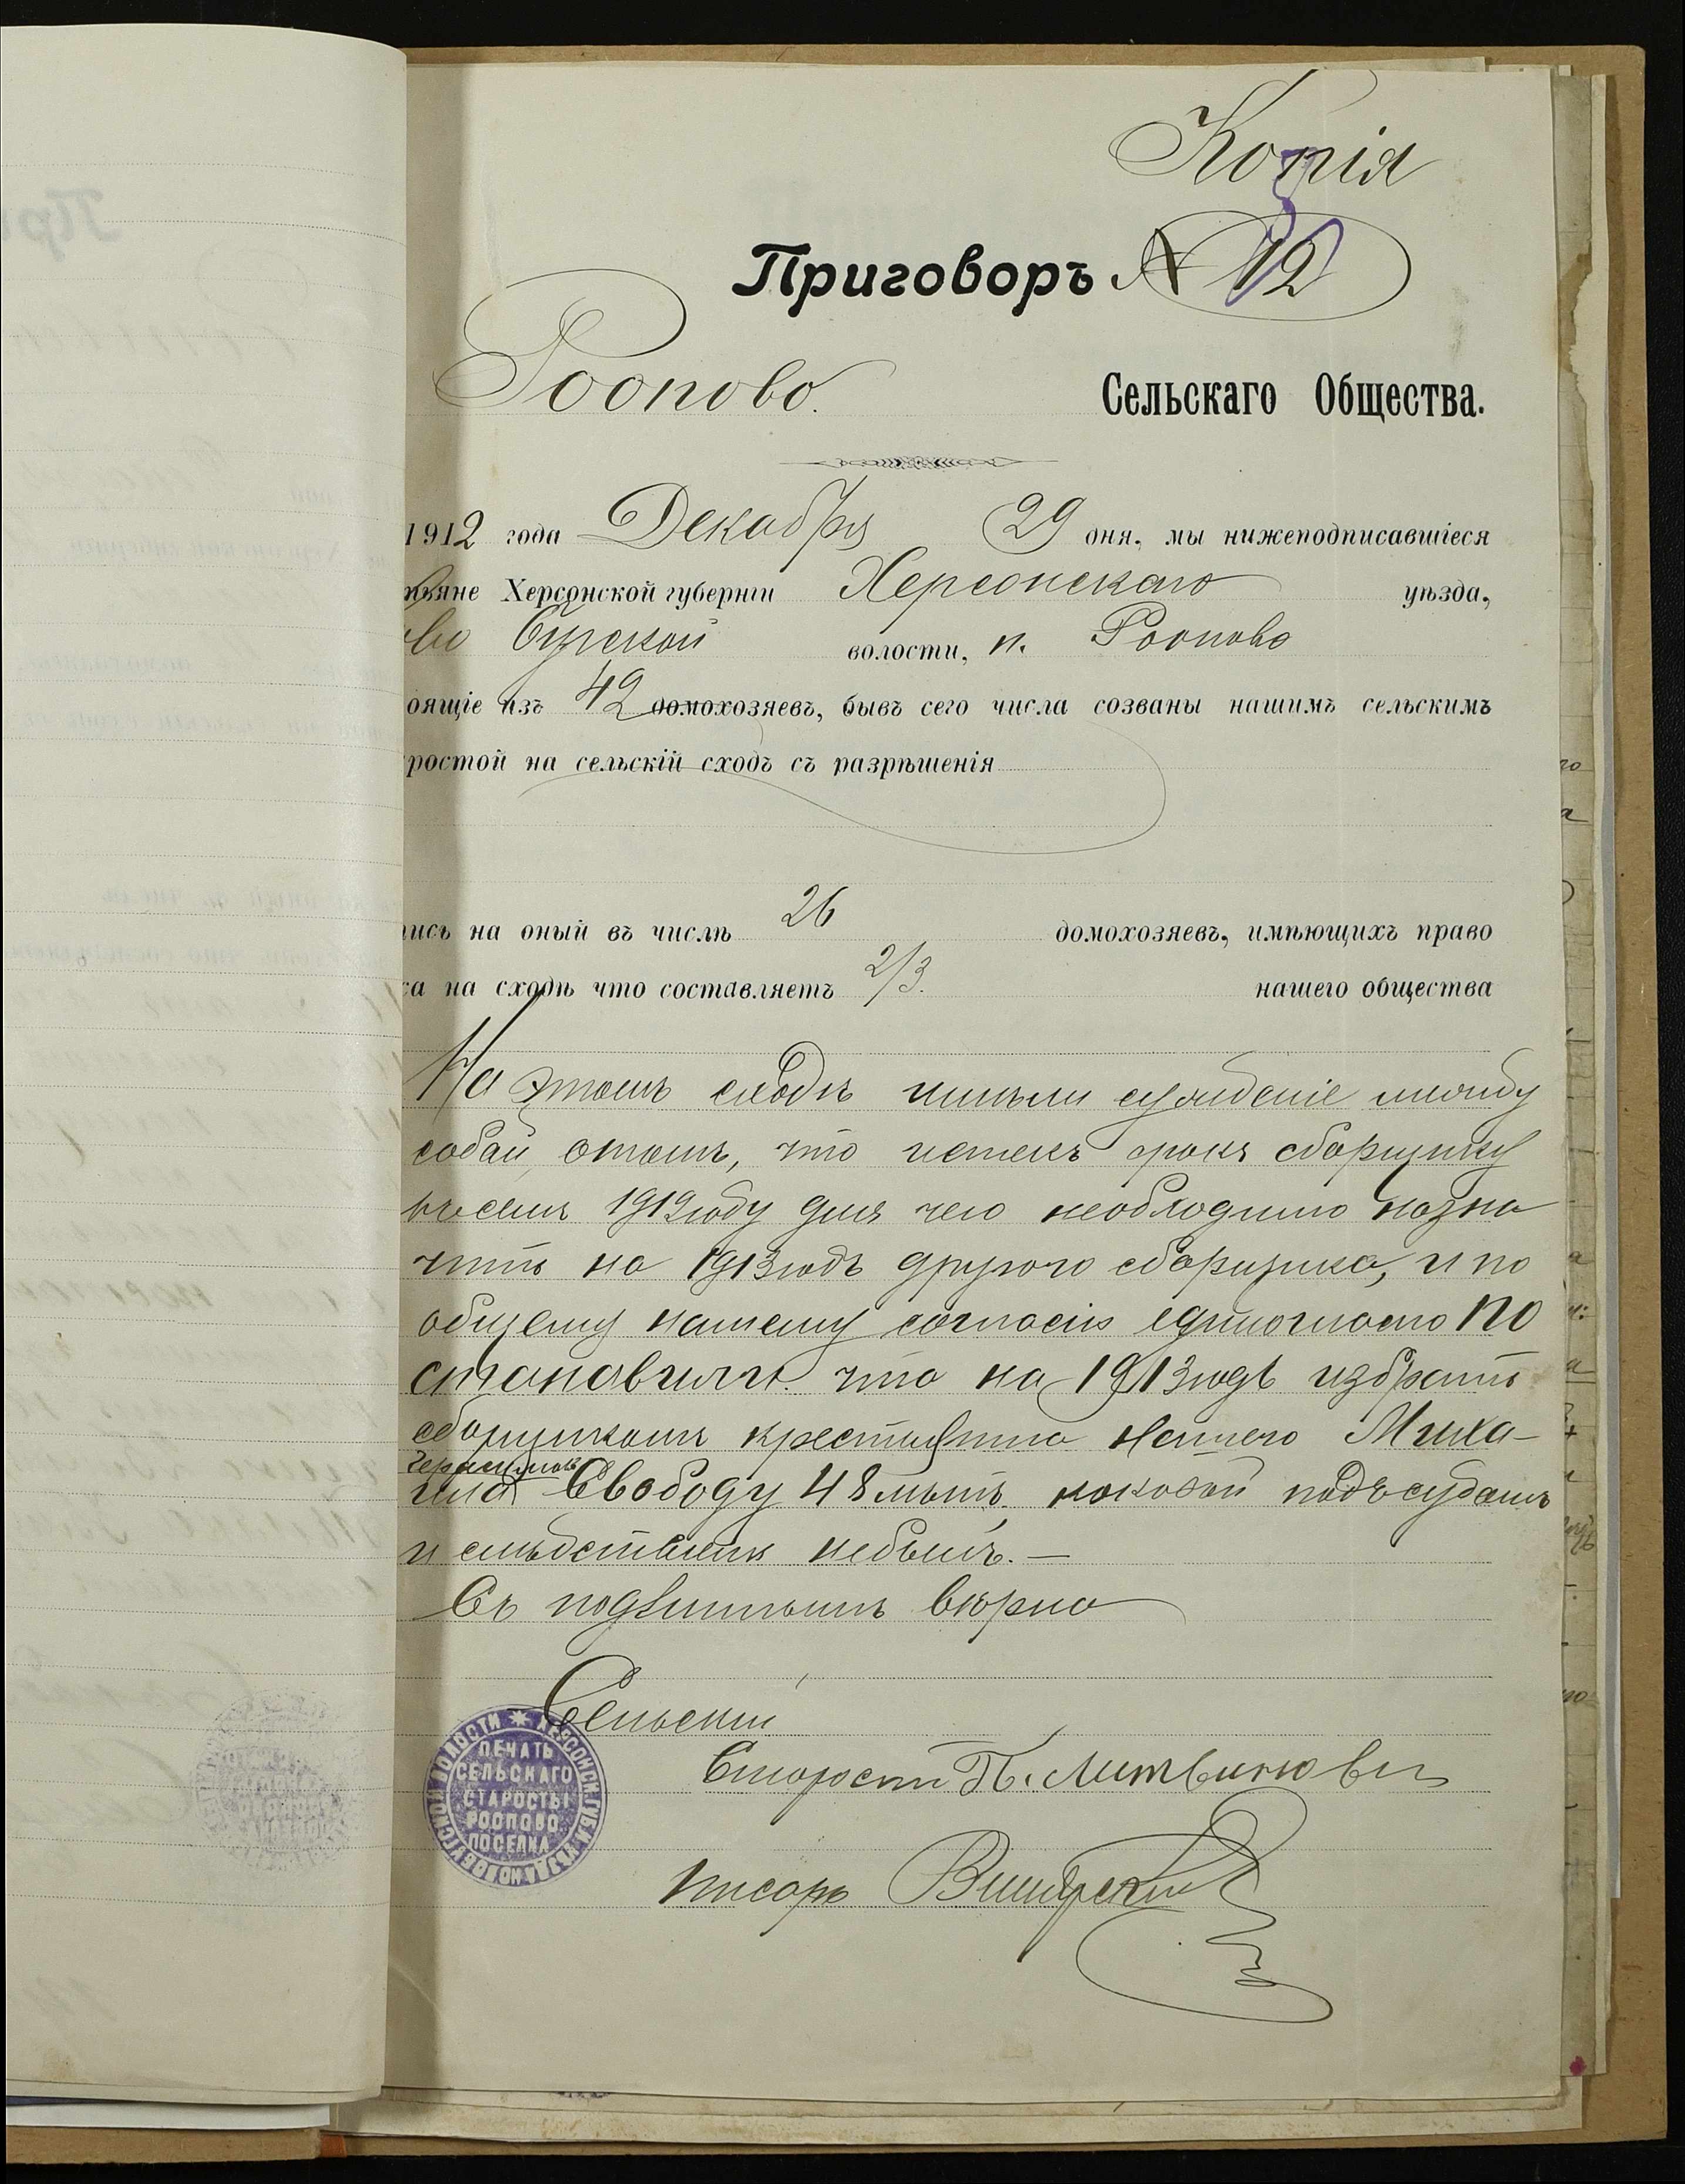 Копія
Приговоръ № 12
Роопово.
Сельскаго Общества.
1912 года Декабря 29 дня, мы нижеподписавшіеся
ьяне Херсонской губерніи Херсонскаго уѣзда,
во Бугской волости, п. Роопово
оящіе изъ 42 домохозяевъ, бывъ сего числа созваны нашимъ сельскимъ
ростой на сельскій сходъ съ разрѣшенія
ись на оный въ числѣ 26 домохозяевъ, имѣющихъ право
са на сходѣ что составляетъ 2/3. нашего общества
На этомъ сходѣ имѣли сужденіе между
собой, отомъ, что истекъ срокъ сборщику
въ семъ 1912 году для чего необходимо назна
чить на 1913 годъ другого сборщика, и по
общему нашему согласію единогласно по
становили что на 1913 годъ избрать
сборщикомъ крестьянина нашего Миха-
ила Герасимова Свободу 48 лѣтъ, каковой подъ судомъ
и слѣдствіемъ небылъ. —
Съ подлиннымъ вѣрно
Сельскій
Староста П. Литвинов
писарь
ПЕЧАТЬ
СЕЛЬСКАГО
СТАРОСТЫ
РООПОВО
ПОСЕЛКА